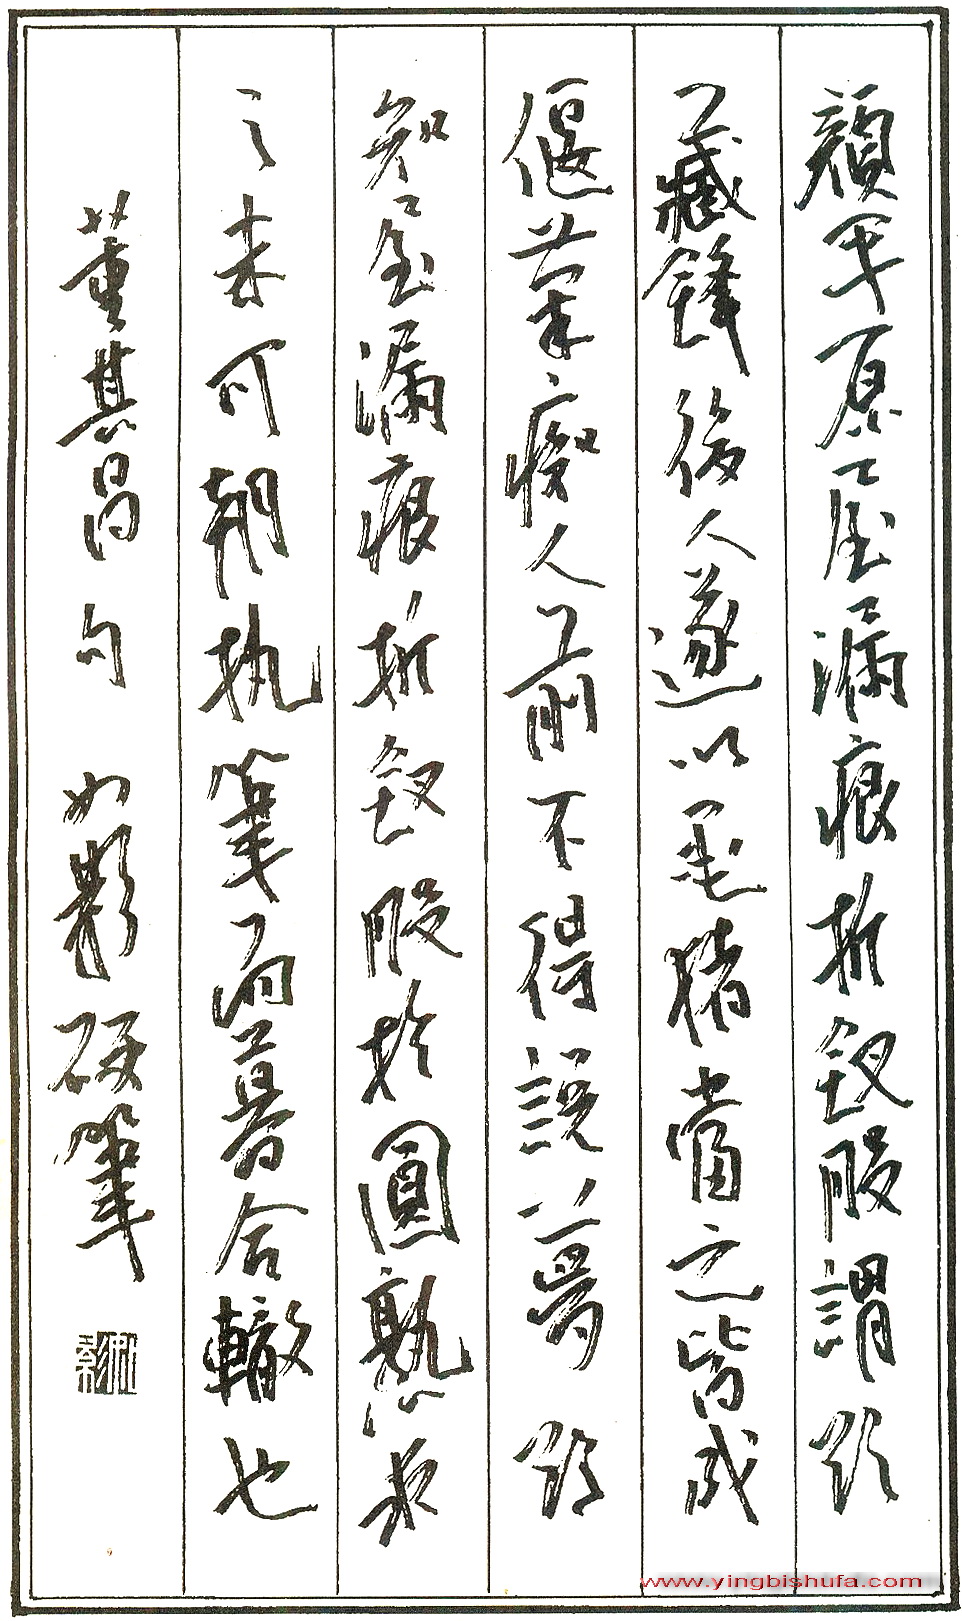 顏平原屋漏痕折釵股謂欲
藏鋒後人遂以墨豬當之皆成
偃筆癡人前不得說夢欲
知屋漏痕折釵股於圓熟求
之未可朝執筆而暮合轍也
董其昌句 如影硬筆
www.yingbishufa.com